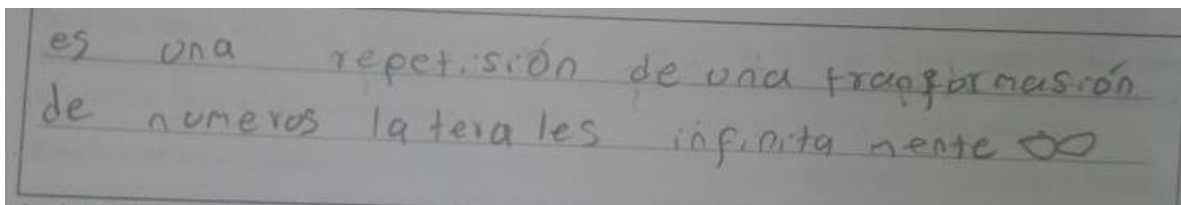 es una repetisión de una tranformasión
de numeros laterales infinitamente ∞